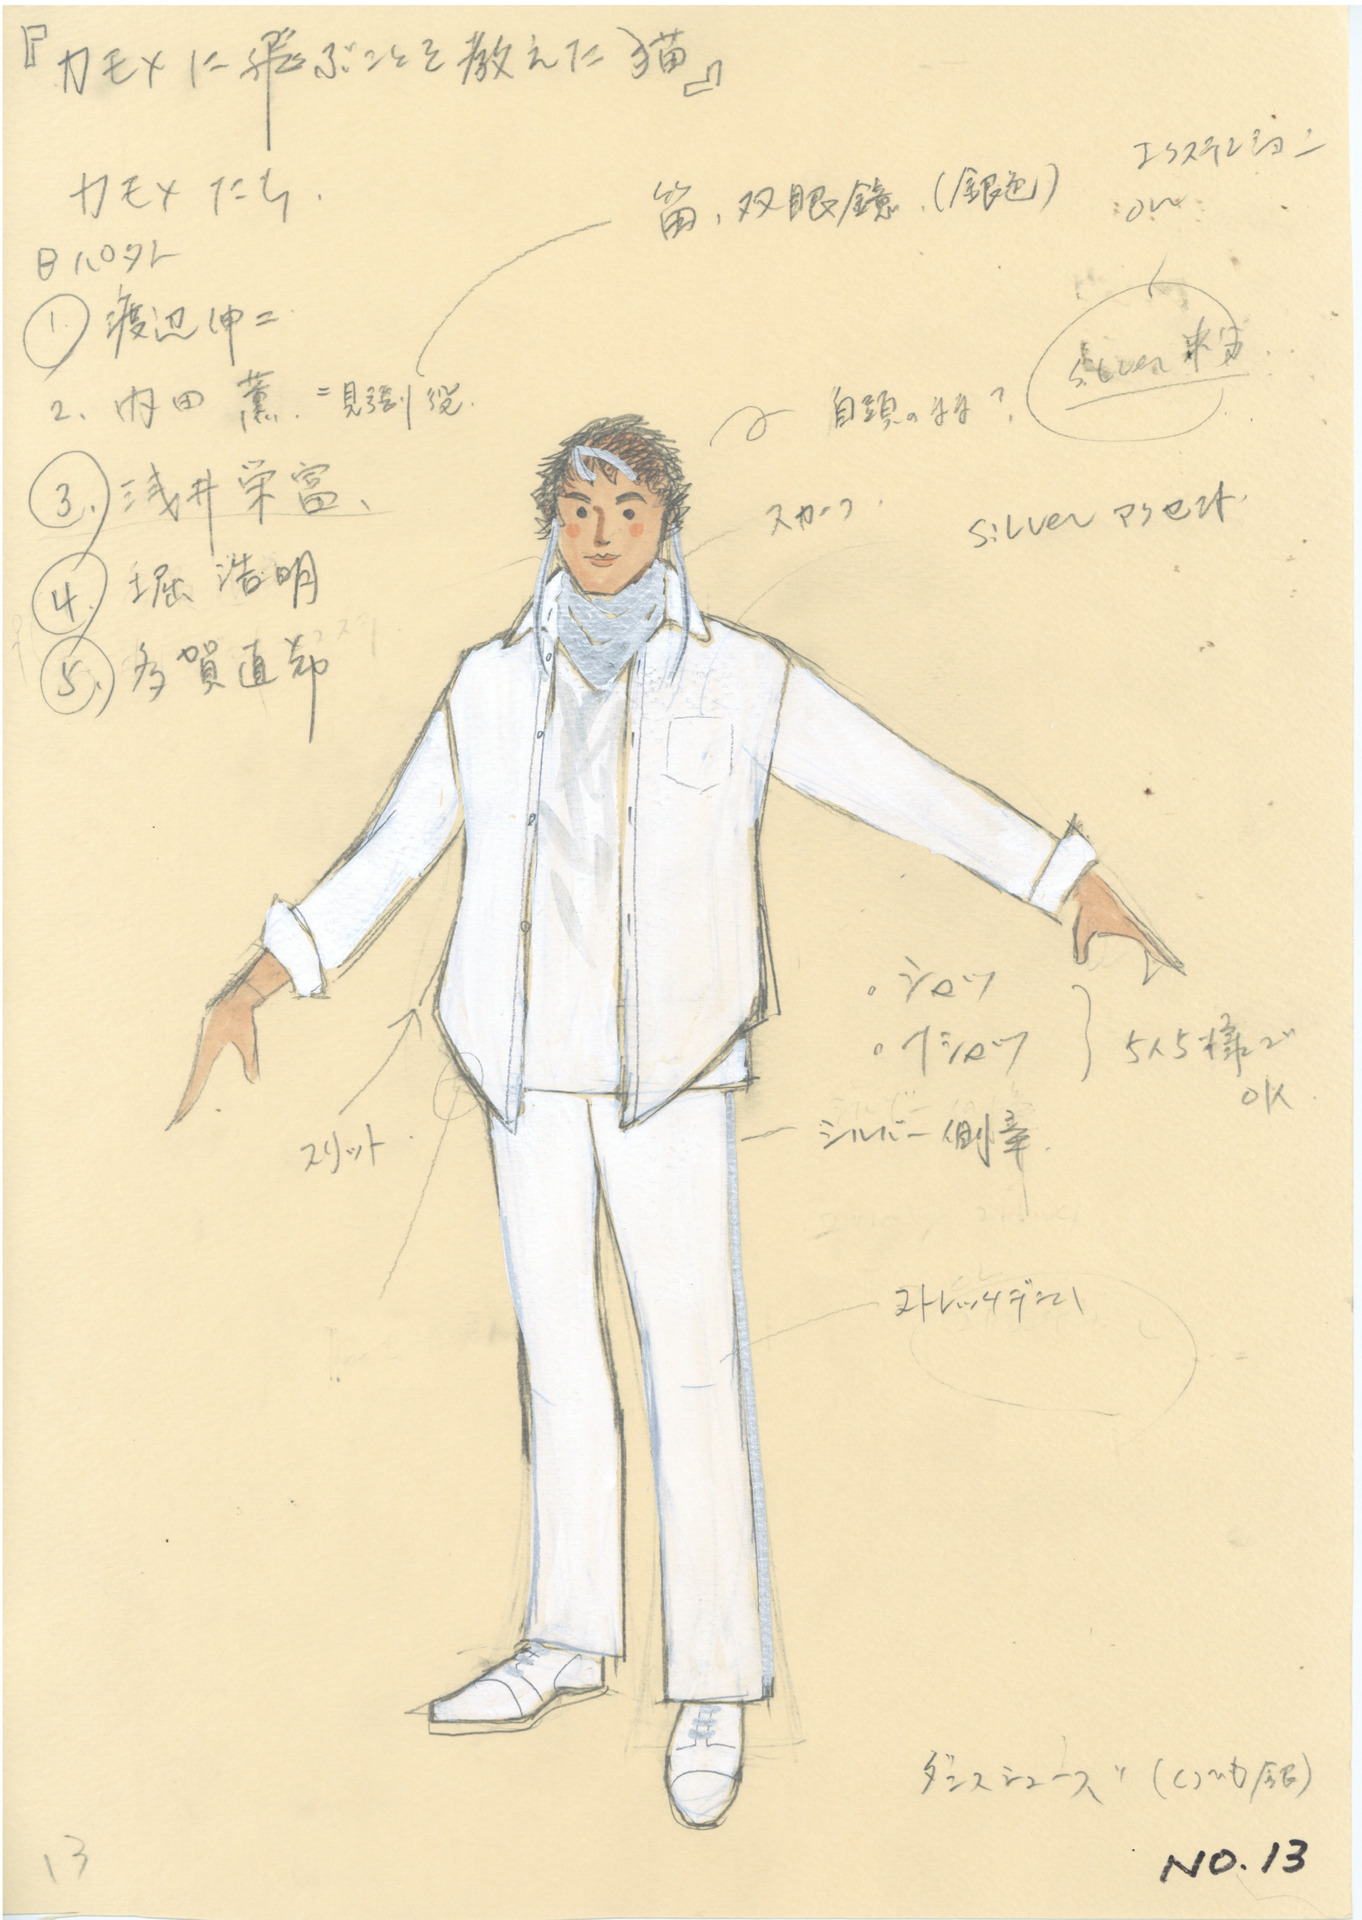 『カモメに飛ぶことを教えた猫』
カモメたち.
エクステンション
on
笛、双眼鏡.(銀色)
日ハロタト
① 渡辺伸二
2. 内田 薫. =見張り役.
③. 浅井栄富、
④. 堀 浩明
⑤. 多賀直郁
Silver 粉
自頭のまま?
スカーフ.
Silver アクセント.
・シャツ
・Tシャツ
5人5様で
OK
スリット.
シルバー側章.
ストレッチデニム
ダンスシューズ (くつひも/銀)
13
NO.13